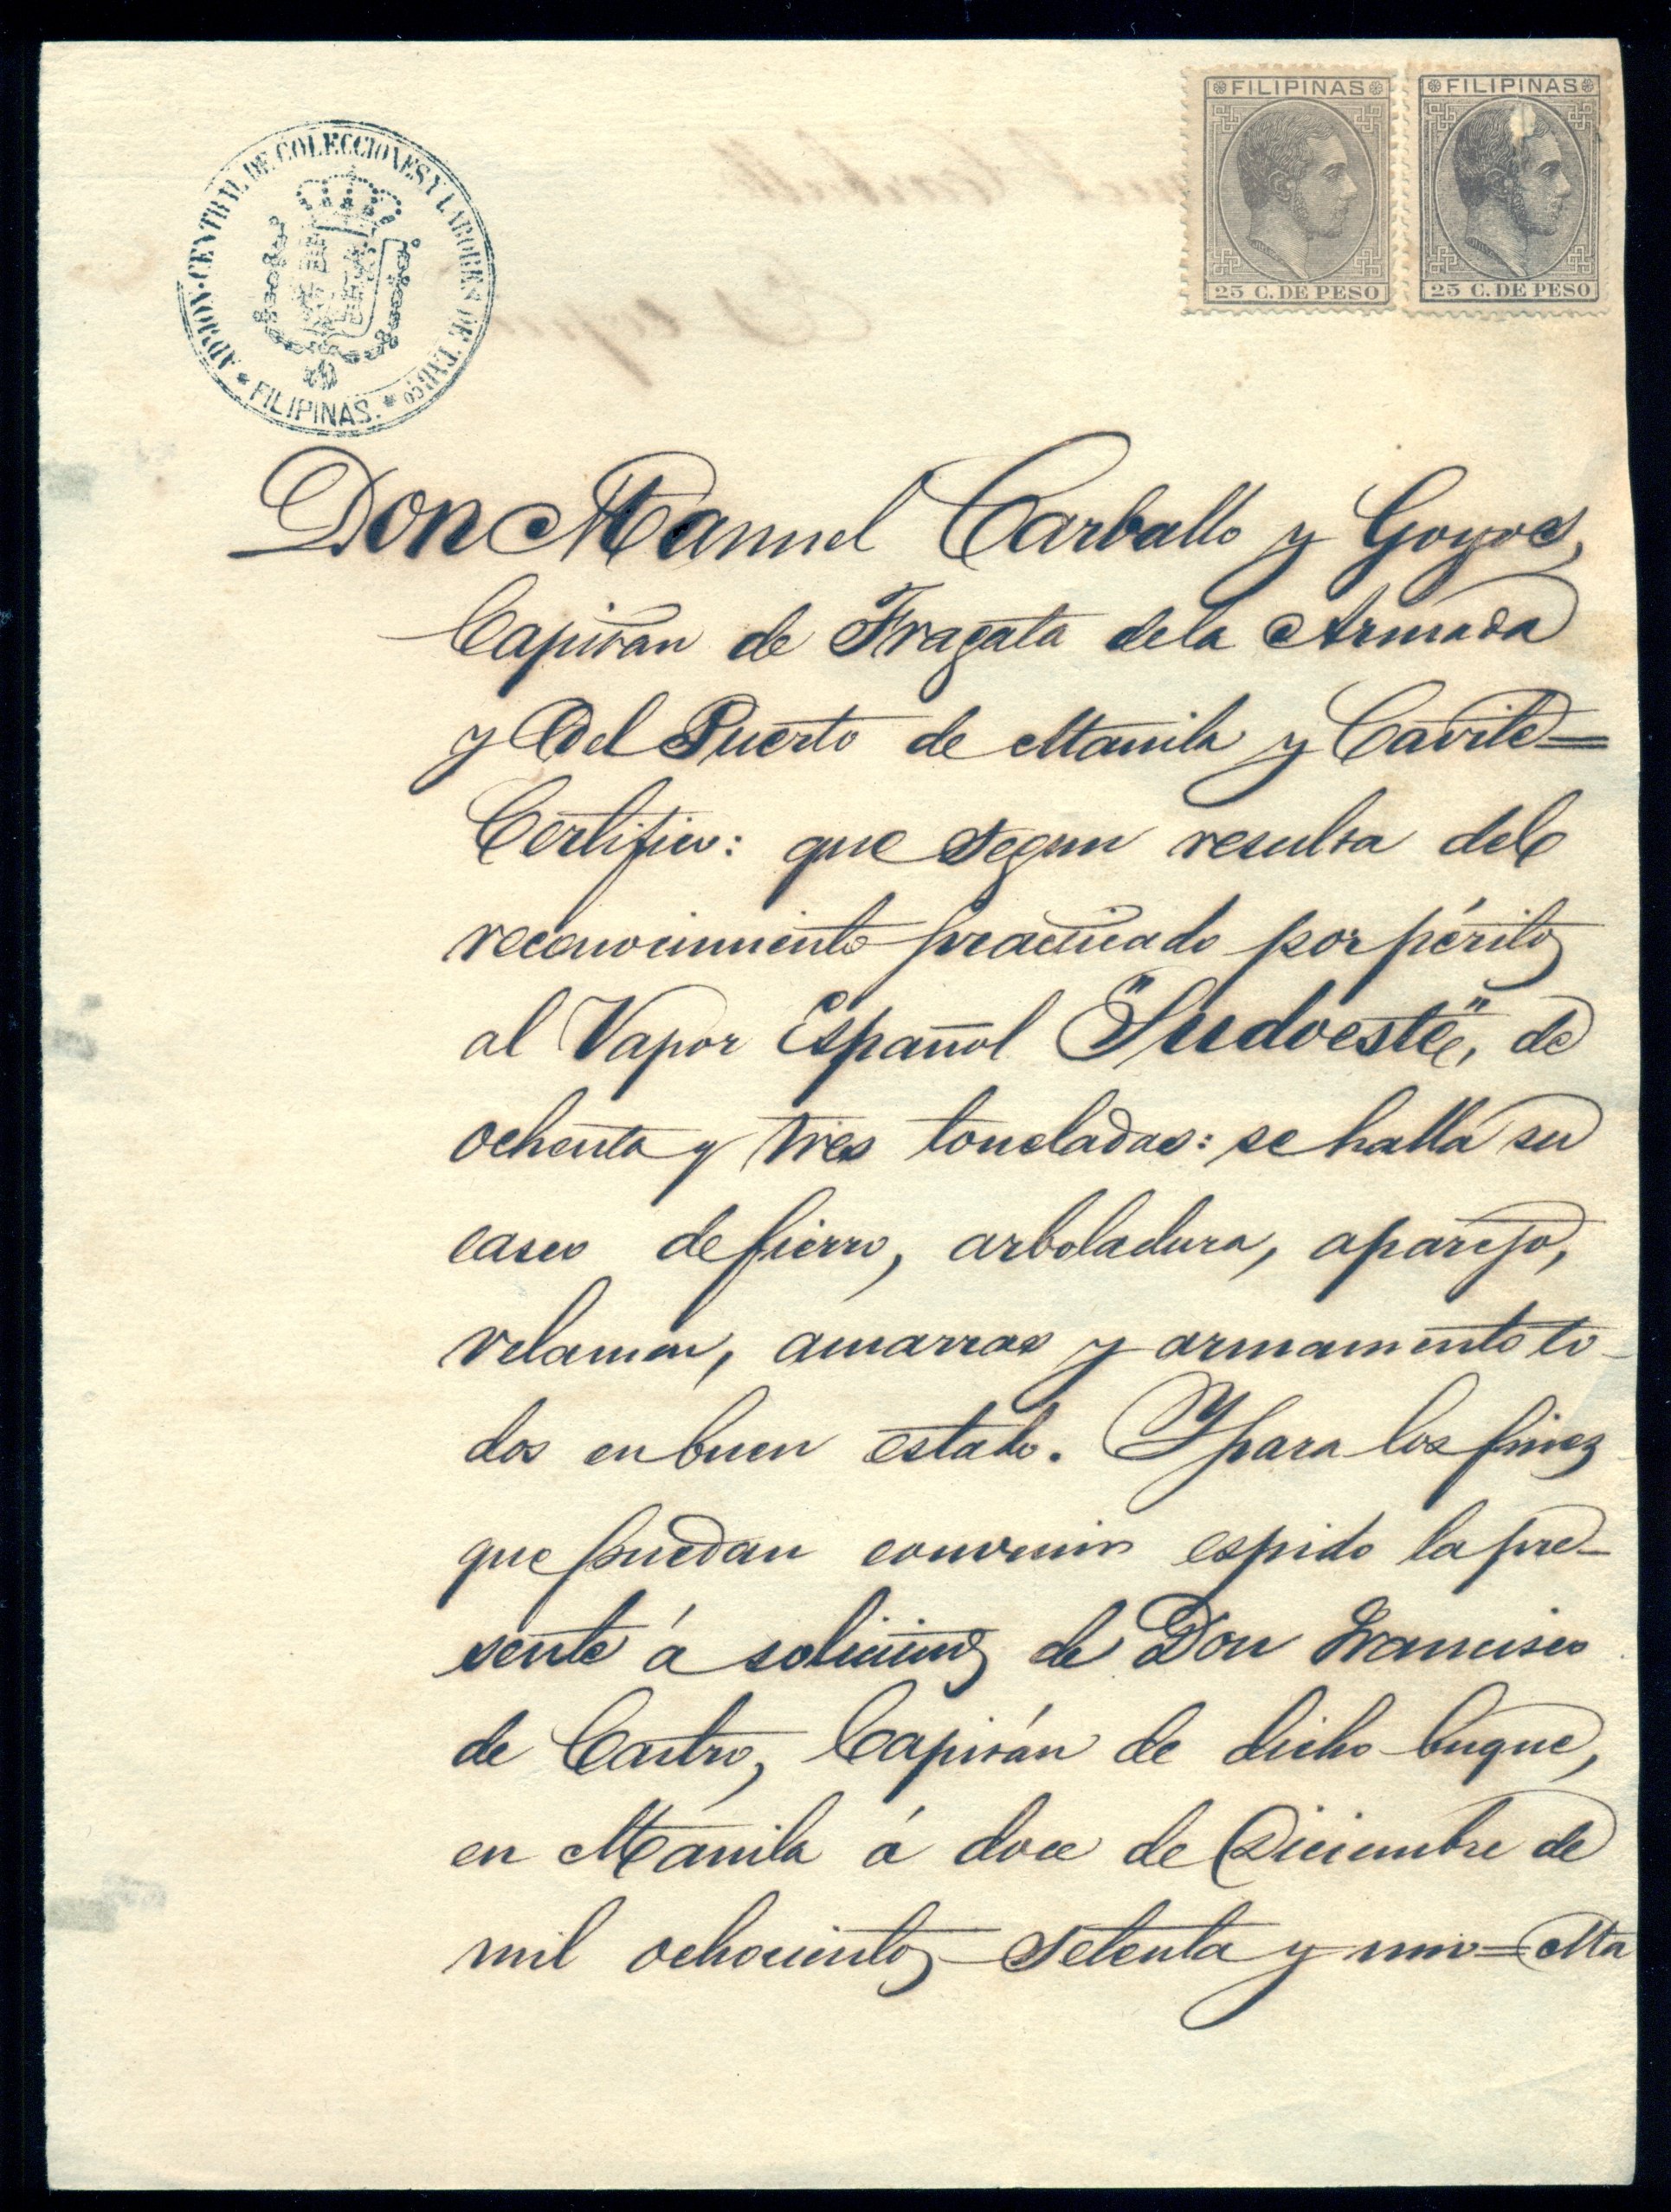 ADMON·CENTRAL DE COLECCIONES Y LABORES DE TABCO
* FILIPINAS. *
FILIPINAS
25 C. DE PESO
FILIPINAS
25 C. DE PESO
Don Manuel Carballo y Goyos,
Capitan de Fragata de la Armada
y del Puerto de Manila y Cavite=
Certifico: que segun resulta del
reconocimiento practicado por péritos
al Vapor Español "Sudoeste", de
ochenta y tres toneladas: se halla su
casco de fierro, arboladura, aparejo,
velamen, amarras y armamento to-
dos en buen estado. Y para los fines
que puedan convenir espido la pre-
sente á solicitud de Don Francisco
de Castro, Capitán de dicho buque,
en Manila á doce de Diciembre de
mil ochocientos setenta y uno= Ma